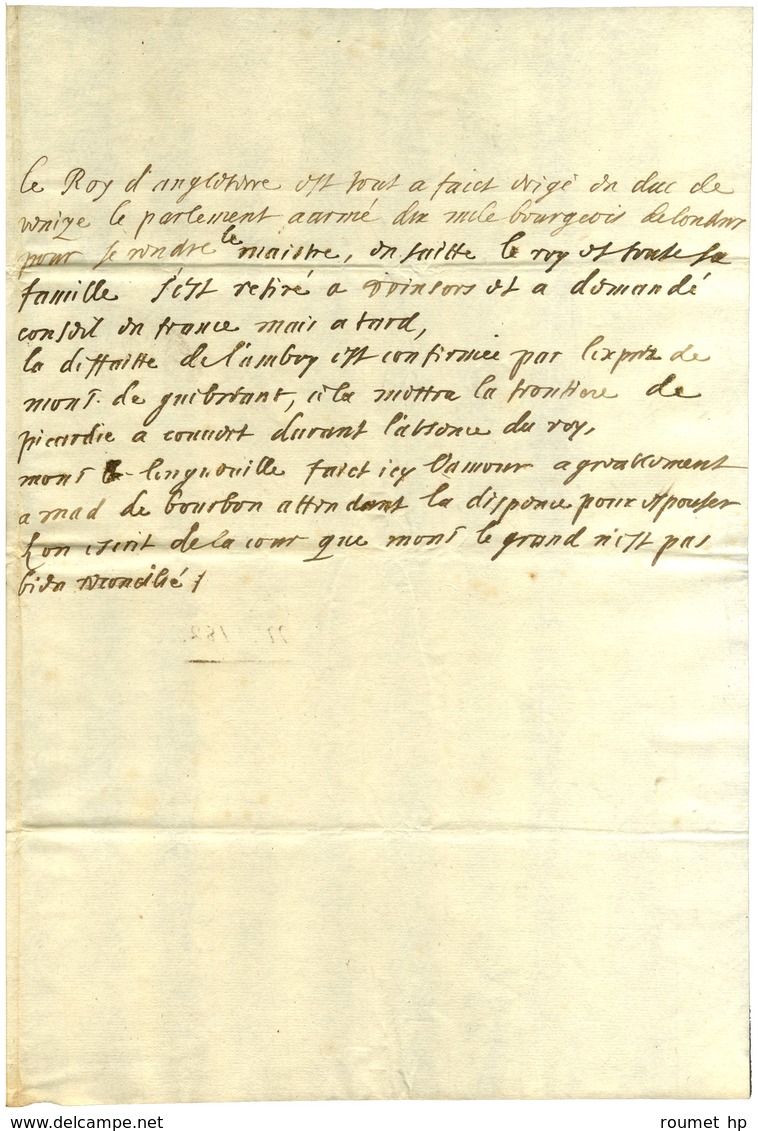 le Roy d'angleterre est tout a faict erigé en duc de
venize le parlement a armé dix mile bourgeois de londres
pour se rendre le maistre, en suitte le roy et toute sa
famille s'est retiré a vvinsors et a demandé
conseil en france mais a tard,
la deffaitte de lamboy est confirmée par l'expres de
mons.r de guibriant, cela mettra la frontiere de
picardie a couvert durant l'absence du roy,
mons.r longueuille faict icy l'amour agreablement
a mad de bourbon attendant la dispence pour espouser
l'on escrit de la cour que mons.r le grand n'est pas
bien reconcilié /
22. 182.
roumet hp